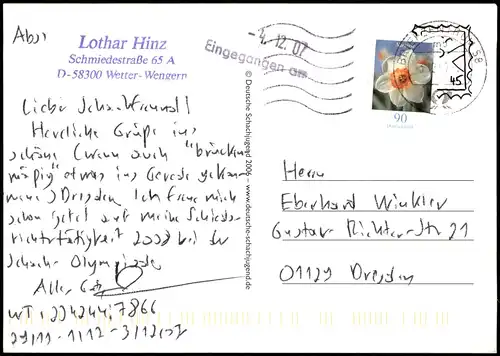 Abs:
Lothar Hinz
Schmiedestraße 65 A
D-58300 Wetter-Wengern
- 4. 12. 07
Eingegangen am
45
90
© Deutsche Schachjugend 2006 – www.deutsche-schachjugend.de
Lieber Schachfreund!
Herzliche Grüße ins
schöne (wenn auch "brücken
mäßig" etwas ins Gerede gekom
mene) Dresden. Ich freue mich
schon jetzt auf meine Schieds
richtertätigkeit 2008 bei der
Schach-Olympiade
Alles Gute
WT: 2242447866
29/11 - 1/12 - 3/12/07
Herrn
Eberhard Winkler
Gustav-Richter-Str 21
01129 Dresden